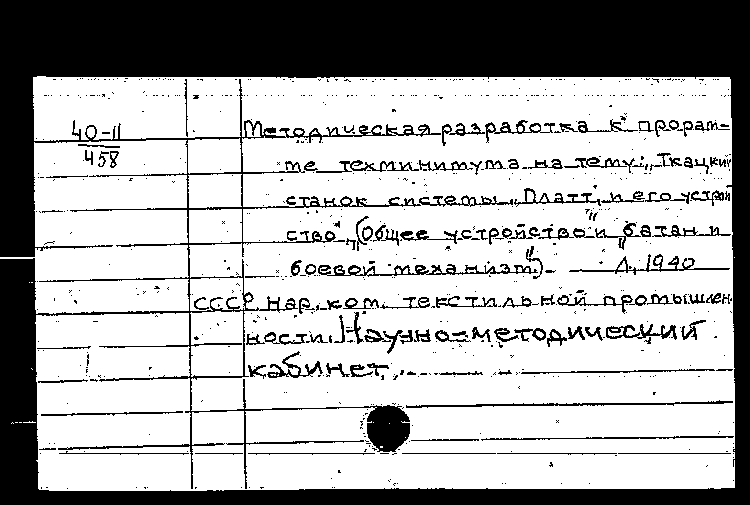 40-II
458
Методическая разработка к програм-
ме техминимума на тему: „Ткацкий
станок системы „Платт" и его устрой
ство", („Общее устройство" и „батан и
боевой механизм") - Л., 1940
СССР Нар. ком. текстильной промышлен
ности. Научно-методический
кабинет.